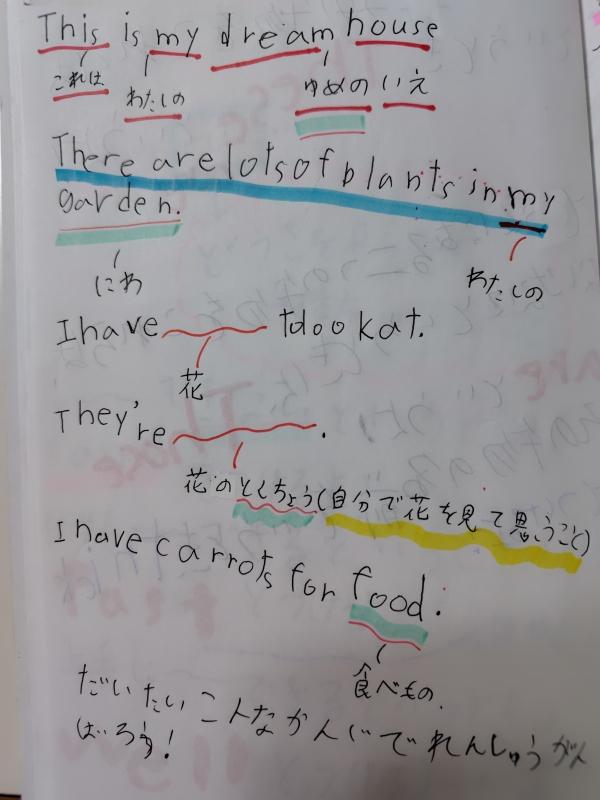 This is my dream house
これは わたしの ゆめの いえ
There are lots of plants in my
garden.
にわ わたしの
I have tdoo kat.
花
They're .
花のとくちょう(自分で花を見て思うこと)
I have carrots for food.
食べもの.
だいたいこんなかんじでれんしゅうがん
ばろう!